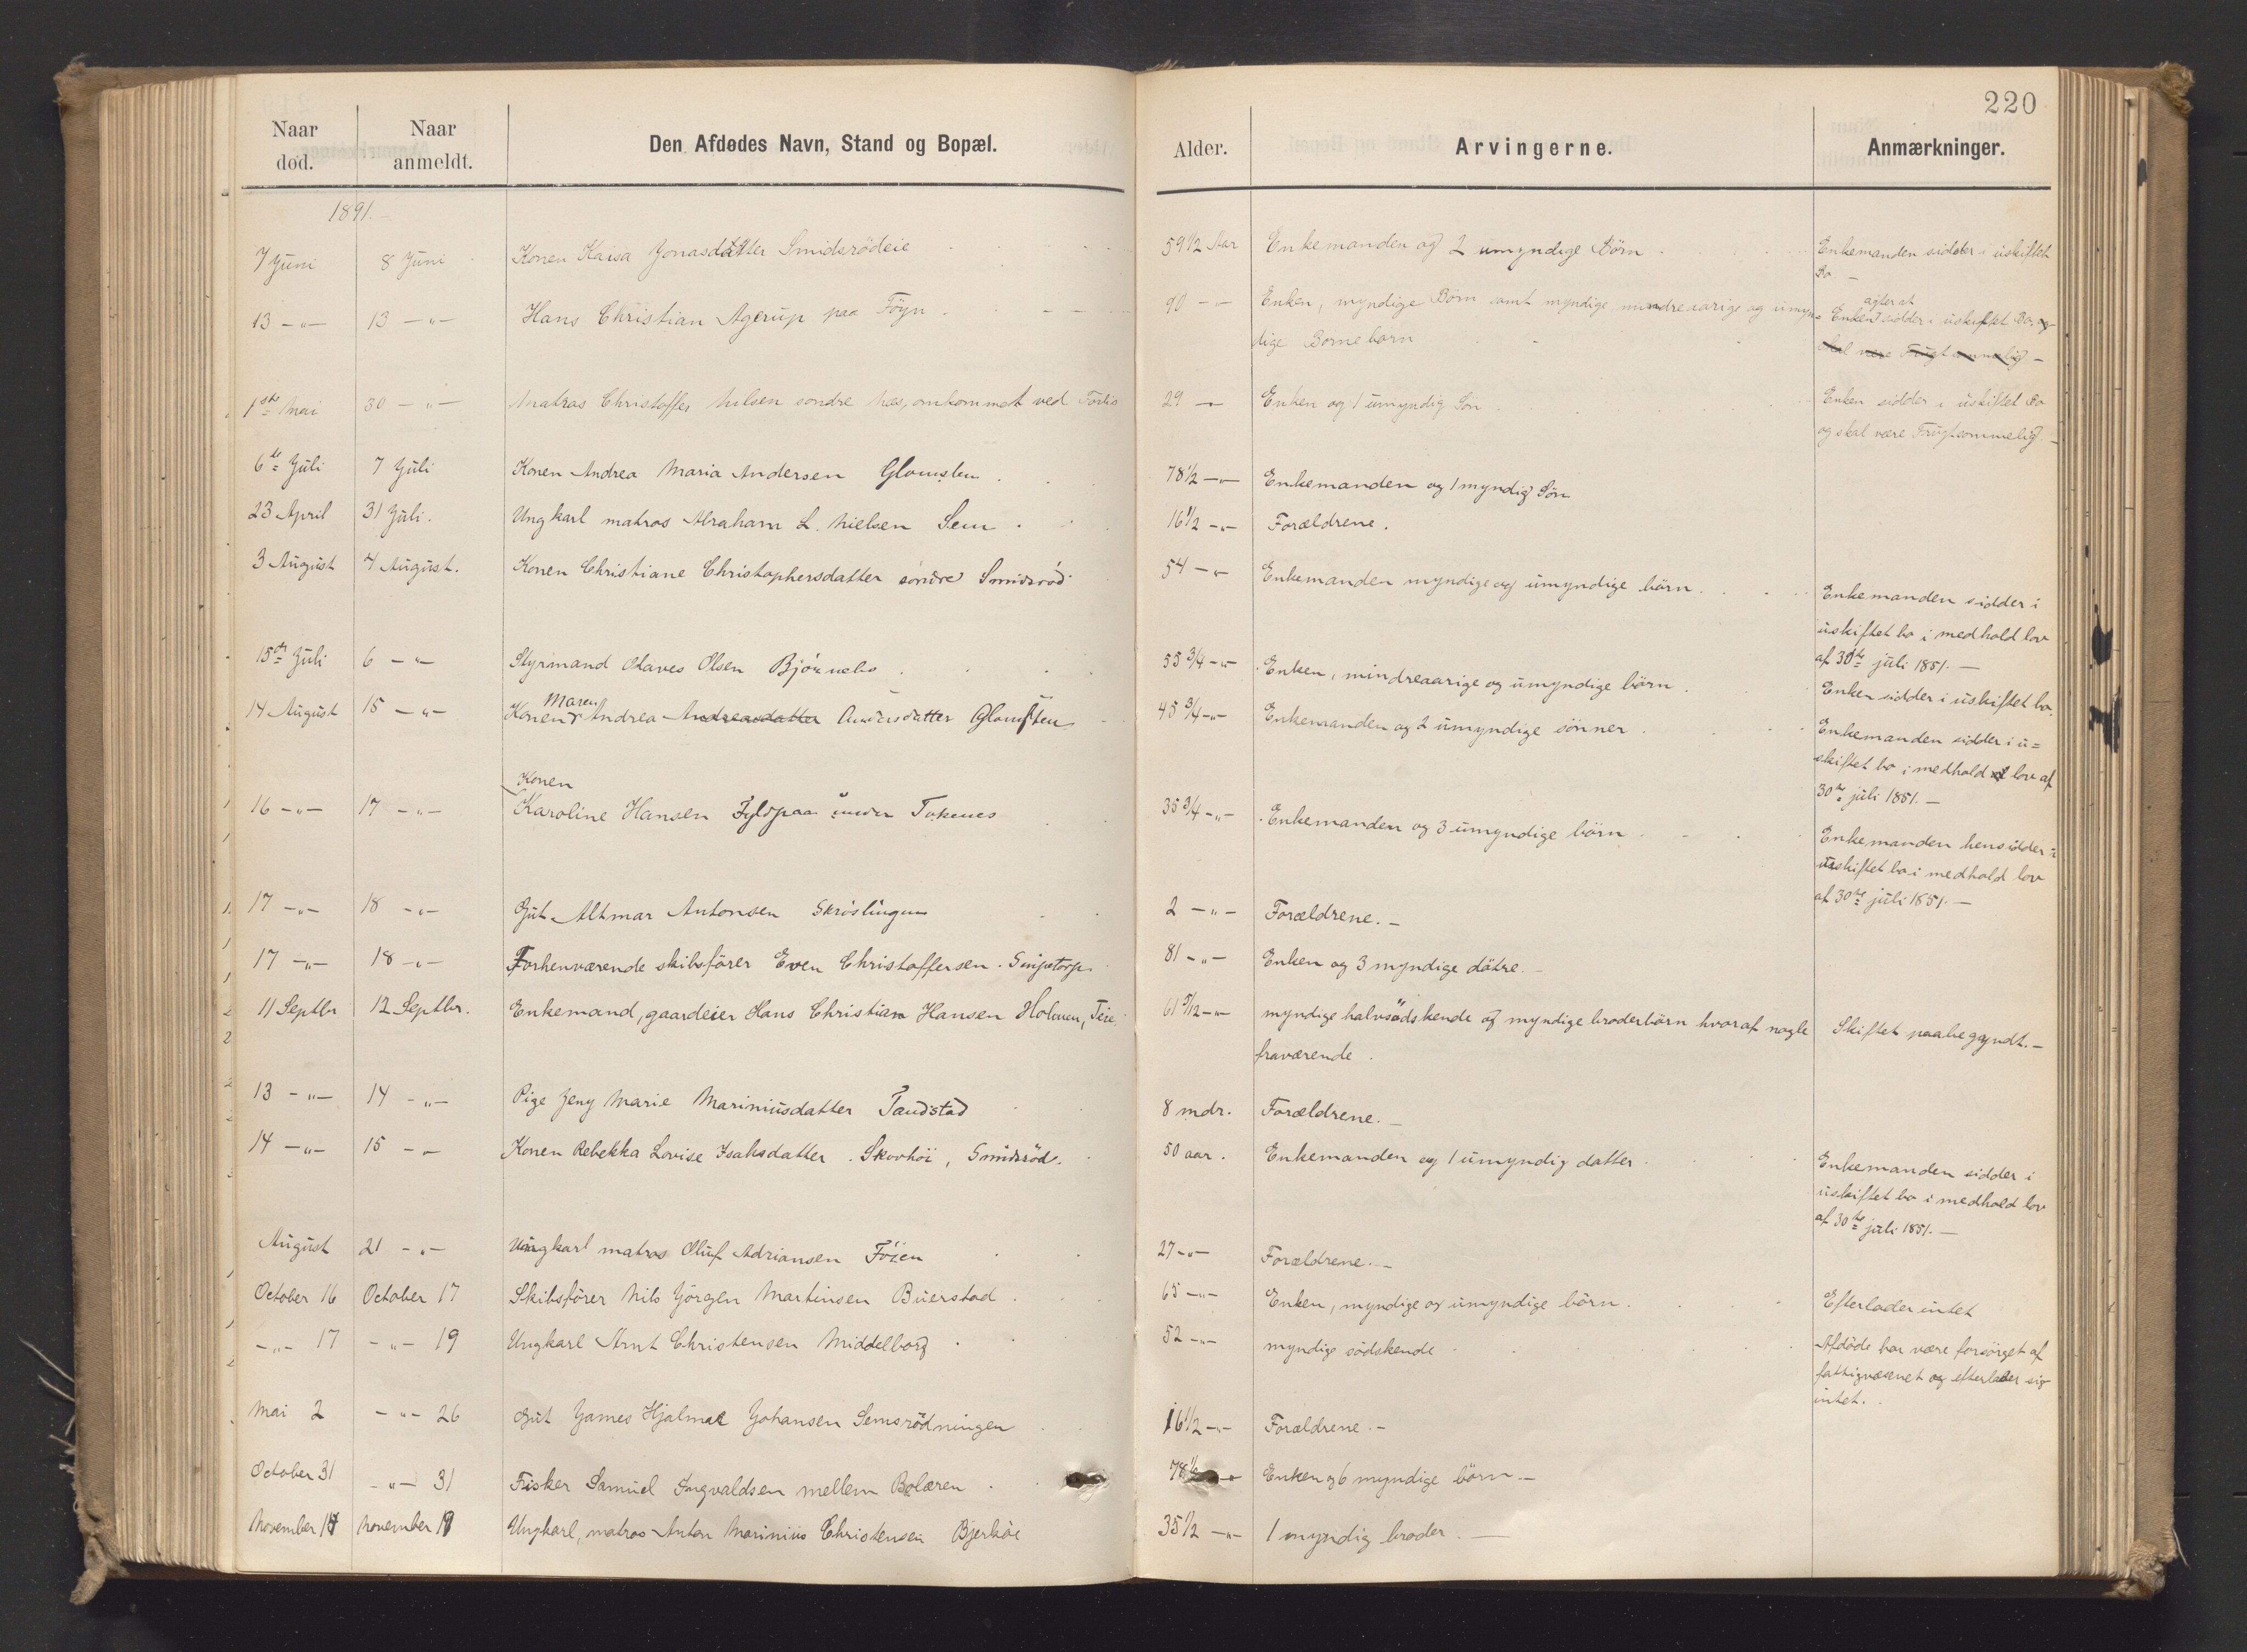 220
Naar død.
Naar anmeldt.
Den Afdødes Navn, Stand og Bopæl.
Alder.
Arvingerne.
Anmærkninger.
1891.
7 Juni 8 Juni Konen Kaisa Jonasdatter Smidsrødeie 59 1/2 Aar Enkemanden og 2 umyndige Børn Enkemanden sidder i uskiftet
Bo
13 -"- 13 -"- Hans Christian Agerup paa Föyn 90 -"- Enken, myndige Börn samt myndige, mindreaarige og umyn= Enken agter at sidder i uskiftet Bo, og
dige Börnebörn skal være Frugtsommelig -
1ste Mai 30 -"- Matros Christoffer Nilsen söndre Nes, omkommet ved Forlis 29 -"- Enken og 1 umyndig Sön Enken sidder i uskiftet Bo
og skal være Frugtsommelig -
6te Juli 7 Juli Konen Andrea Maria Andersen Glomsten 78 1/2 -"- Enkemanden og 1 myndig Sön
23 April 31 Juli. Ungkarl matros Abraham L. Nielsen Sem 16 1/2 -"- Forældrene.
3 August 4 August. Konen Christiane Christophersdatter söndre Smidsröd 54 -"- Enkemanden myndige og umyndige börn. Enkemanden sidder i
uskiftet bo i medhold lov
af 30te juli 1851. -
15de Juli 6 -"- Styrmand Olaves Olsen Bjørnebo 55 3/4 -"- Enken, mindreaarige og umyndige börn. Enken sidder i uskiftet bo.
14 August 15 -"- Konen Maren Andrea Andreasdatter Andersdatter Glomsten 45 3/4 -"- Enkemanden og 2 umyndige sönner Enkemanden sidder i u=
skiftet bo i medhold af lov af
30te juli 1851. -
16 -"- 17 -"- Konen Karoline Hansen Fyldpaa under Tokenes 35 3/4 -"- Enkemanden og 3 umyndige börn Enkemanden hensidder i
uskiftet bo i medhold lov
af 30te juli 1851. -
17 -"- 18 -"- Gut Altmar Antonsen Skröslingen 2 -"- Forældrene. -
17 -"- 18 -"- Forhenværende skibsfører Even Christoffersen. 81 -"- Enken og 3 myndige dötre. -
11 Septbr 12 Septbr. Enkemand, gaardeier Hans Christian Hansen Holmen, Teie 61 5/12 -"- myndige halvsödskende og myndige broderbörn hvoraf nogle Skiftet paabegyndt. -
fraværende.
13 -"- 14 -"- Pige Jeny Marie Mariniusdatter Tandstad 8 mdr. Forældrene. -
14 -"- 15 -"- Konen Rebekka Lovise Isaksdatter. Skovhöi, Smidsröd. 50 aar. Enkemanden og 1 umyndig datter Enkemanden sidder i
uskiftet bo i medhold lov
af 30te juli 1851. -
August 21 -"- Ungkarl matros Oluf Adriansen Föien 27 -"- Forældrene. -
October 16 October 17 Skibsfører Nils Jörgen Martinsen Buerstad 65 -"- Enken, myndige og umyndige börn. Efterlader intet
-"- 17 -"- 19 Ungkarl Arnt Christensen Middelborg 52 -"- myndige södskende Afdöde har være forsörget af
fattigvæsenet og efterlader sig
intet.
Mai 2 -"- 26 Gut James Hjalmar Johansen Semsrödningen 16 1/2 -"- Forældrene. -
October 31 -"- 31 Fisker Samuel Ingvaldsen mellem Bolæren 78 Enken og 6 myndige börn -
November November Ungkarl, matros Anton Marinius Christensen Bjerköe 35 1/2 -"- 1 myndig broder. -